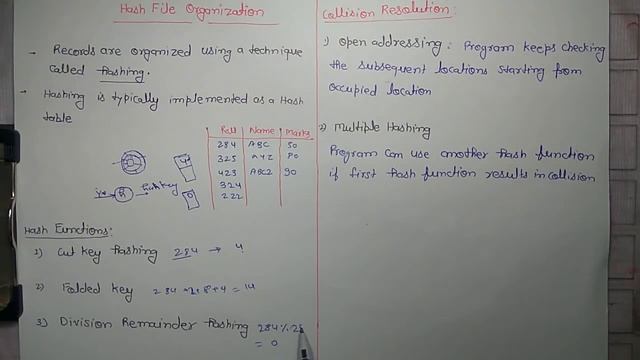 Hash File Organization
- Records are organized using a technique
called hashing.
- Hashing is typically implemented as a Hash
table
Roll Name Marks
284 ABC 50
325 AYZ 80
423 ABCZ 90
324
222
hash key
Hash Functions:
1) Cut key hashing 284 → 4
2) Folded key 284 → 2+8+4 = 14
3) Division Remainder hashing 284 % 2
= 0
Collision Resolution:
1) Open addressing: Program keeps checking
the subsequent locations starting from
occupied location
2) Multiple Hashing
Program can use another hash function
if first hash function results in collision